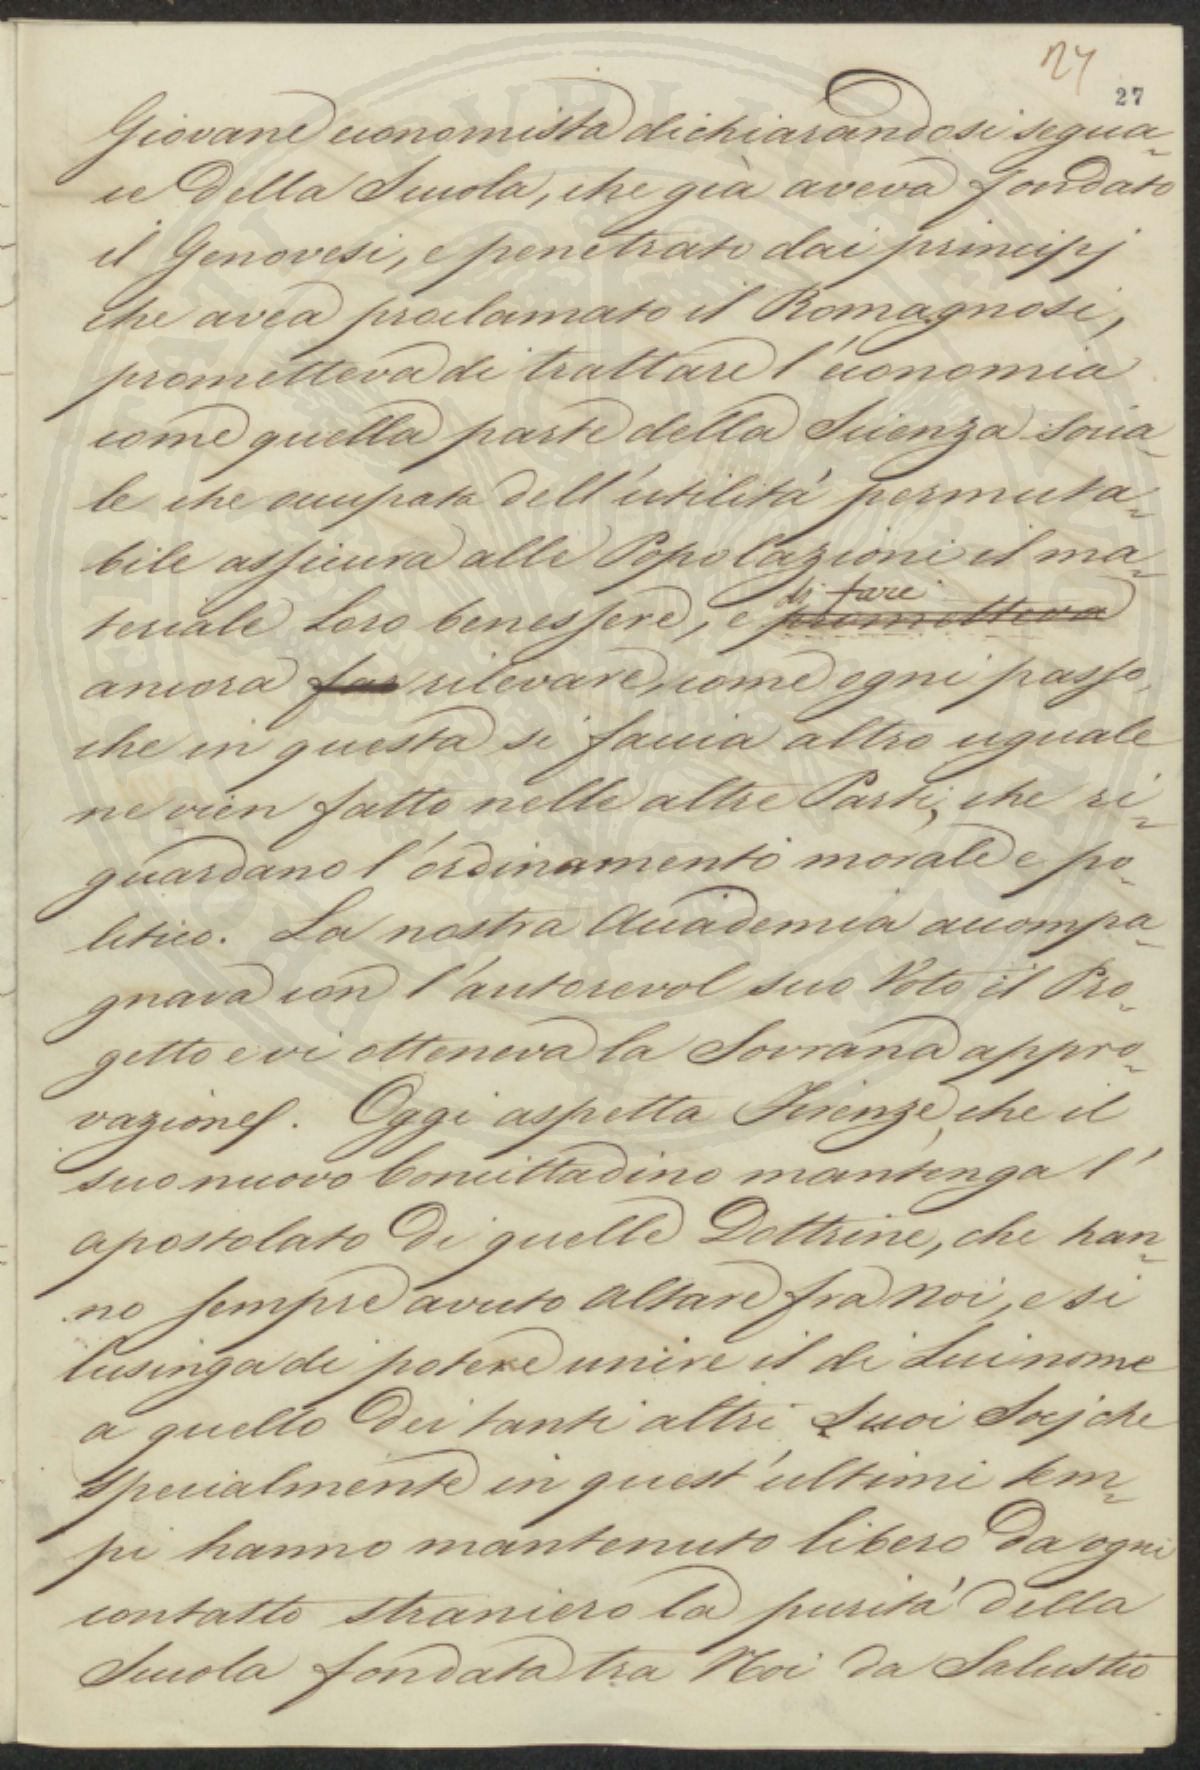 27
27
Giovane economista dichiarandosi segua-
ce della Scuola, che già aveva fondato
il Genovesi, e penetrato dai principj
che avea proclamato il Romagnosi,
prometteva di trattare l'economia
come quella parte della Scienza socia-
le che occupata dell'utilità permuta-
bile assicura alle Popolazioni il ma-
teriale Loro benessere, e prometteva
di fare
ancora far rilevare, come ogni passo,
che in questa si faccia altro uguale
ne vien fatto nelle altre Parti, che ri-
guardano l'ordinamento morale e po-
litico. La nostra Accademia accompa-
gnava con l'autorevol suo Voto il Pro-
getto e vi otteneva la Sovrana appro-
vazione. Oggi aspetta Firenze, che il
suo nuovo Concittadino mantenga l'
apostolato di quelle Dottrine, che han-
no sempre avuto altare fra noi, e si
lusinga di potere unire il di Lui nome
a quello dei tanti altri Suoi Socj che
specialmente in quest'ultimi tem-
pi hanno mantenuto libero da ogni
contatto straniero la purità della
Scuola fondata tra Noi da Salustio